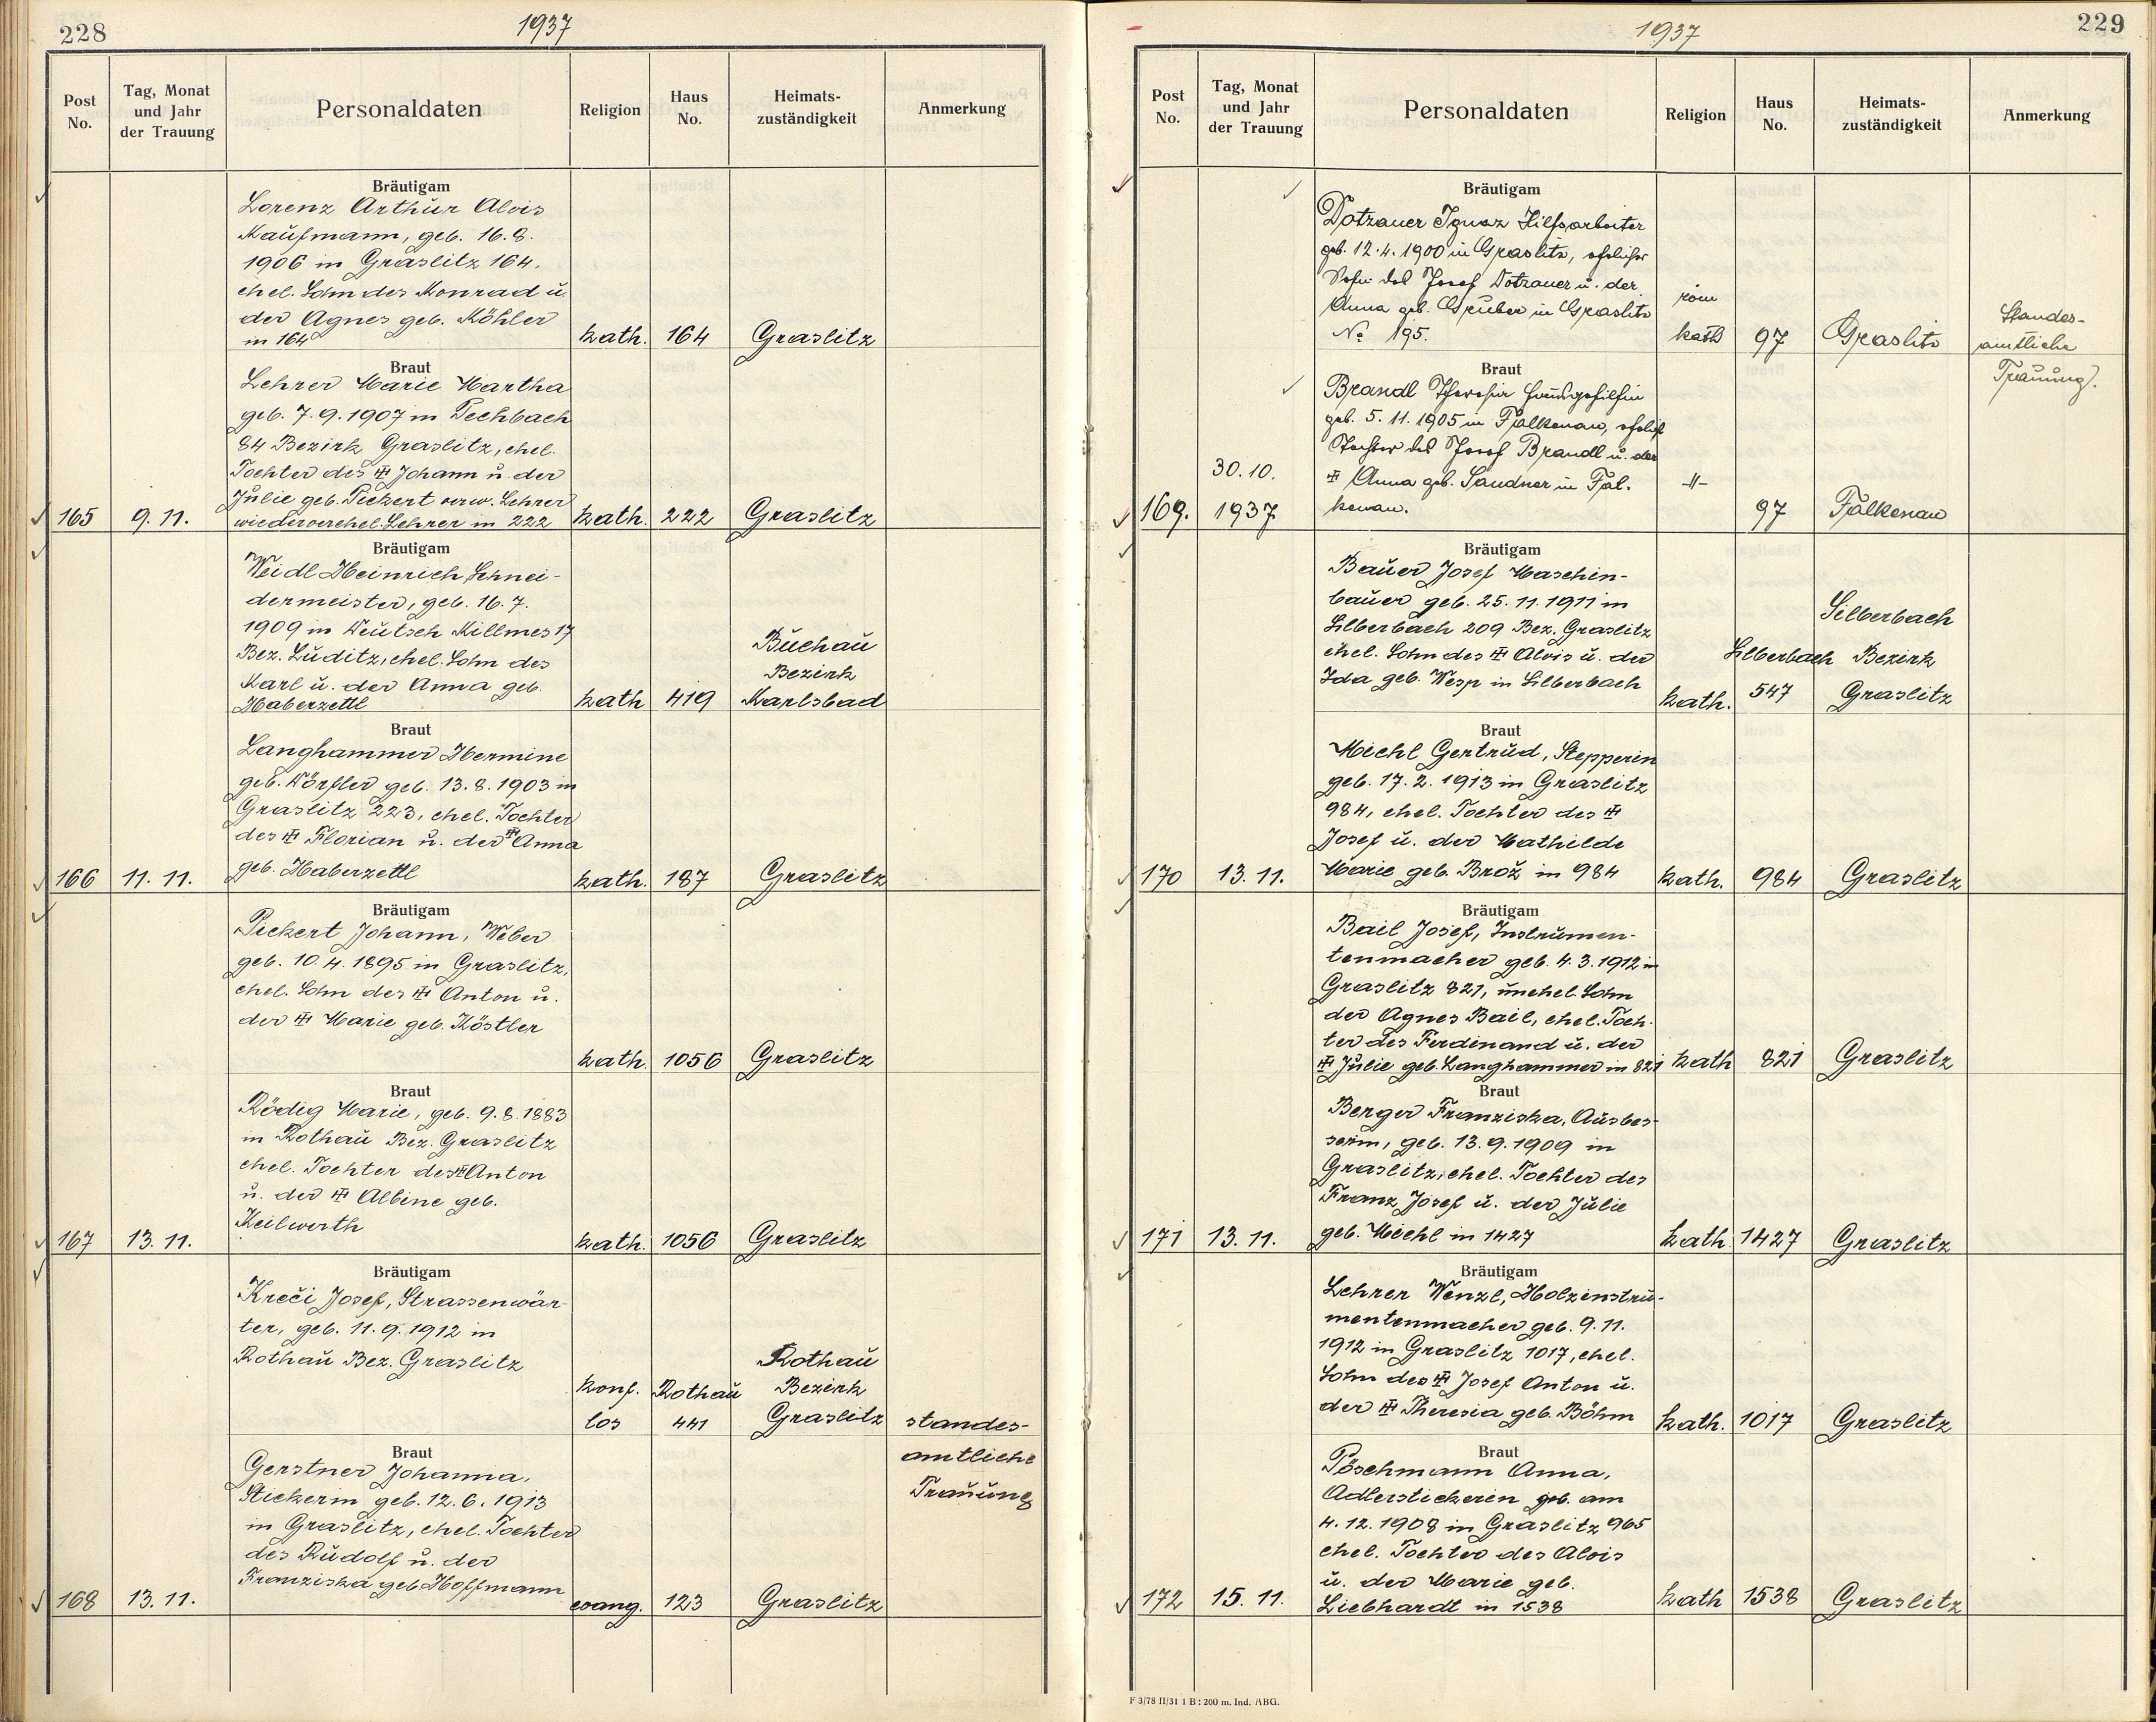 228
1937
Post No.
Tag, Monat und Jahr der Trauung
Personaldaten
Religion
Haus No.
Heimats-zuständigkeit
Anmerkung
Bräutigam
Lorenz Arthur Alois
Kaufmann, geb. 16.8.
1906 in Graslitz 164,
ehel. Sohn des Konrad u.
der Agnes geb. Köhler
in 164
kath. 164 Graslitz
Braut
Lehrer Marie Martha
geb. 7.9.1907 in Pechbach
84 Bezirk Graslitz, ehel.
Tochter des ✠ Johann u. der
Julie geb. Pickert verw. Lehrer
wiederverehel. Lehrer in 222
165 9.11. kath. 222 Graslitz
Bräutigam
Weidl Heinrich Schnei-
dermeister, geb. 16.7.
1909 in Deutsch Killmes 17
Bez. Luditz, ehel. Sohn des
Karl u. der Anna geb.
Haberzettl
kath 419
Buchau
Bezirk
Karlsbad
Braut
Langhammer Hermine
geb. Dörfler geb. 13.8.1903 in
Graslitz 223, ehel. Tochter
des ✠ Florian u. der ✠ Anna
geb. Haberzettl
166 11.11. kath. 187 Graslitz
Bräutigam
Pickert Johann, Weber
geb. 10.4.1895 in Graslitz,
ehel. Sohn des ✠ Anton u.
der ✠ Marie geb. Köstler
kath. 1056 Graslitz
Braut
Rödig Marie, geb. 9.8.1883
in Rothau Bez. Graslitz
ehel. Tochter des ✠ Anton
u. der ✠ Albine geb.
Keilwerth
167 13.11. kath. 1056 Graslitz
Bräutigam
Kreči Josef, Strassenwär-
ter, geb. 11.9.1912 in
Rothau Bez. Graslitz
konf.
los
Rothau
441
Rothau
Bezirk
Graslitz
standes-
amtliche
Trauung
Braut
Gerstner Johanna,
Stickerin geb. 12.6.1913
in Graslitz, ehel. Tochter
des Rudolf u. der
Franziska geb. Hoffmann
168 13.11. evang. 123 Graslitz
229
1937
Post No.
Tag, Monat und Jahr der Trauung
Personaldaten
Religion
Haus No.
Heimats-zuständigkeit
Anmerkung
Bräutigam
Dotzauer Ignaz Hilfsarbeiter
geb. 12.4.1900 in Graslitz, ehelicher
Sohn des Josef Dotzauer u. der
Anna geb. Gruber in Graslitz
No 195.
röm
kath 97 Graslitz
Standes-
amtliche
Trauung.
Braut
Brandl Theresia Hausgehilfin
geb. 5.11.1905 in Falkenau, ehelich
Tochter des Josef Brandl u. der
✠ Anna geb. Sandner in Fal-
kenau.
169. 30.10.
1937
-"-
97 Falkenau
Bräutigam
Bauer Josef Maschin-
bauer geb. 25.11.1911 in
Silberbach 209 Bez. Graslitz
ehel. Sohn des ✠ Alois u. der
Ida geb. Wesp in Silberbach
kath.
Silberbach
547
Silberbach
Bezirk
Graslitz
Braut
Michl Gertrud, Stepperin
geb. 17.2.1913 in Graslitz
984, ehel. Tochter des ✠
Josef u. der Mathilde
Marie geb. Brož in 984
170 13.11. kath. 984 Graslitz
Bräutigam
Bail Josef, Instrumen-
tenmacher geb. 4.3.1912 in
Graslitz 821, unehel. Sohn
der Agnes Bail, ehel. Toch-
ter des Ferdinand u. der
✠ Julie geb. Langhammer in 821
kath 821 Graslitz
Braut
Berger Franziska, Ausbes-
serin, geb. 13.9.1909 in
Graslitz, ehel. Tochter des
Franz Josef u. der Julie
geb. Michl in 1427
171 13.11. kath 1427 Graslitz
Bräutigam
Lehrer Wenzl, Holzinstru-
mentenmacher geb. 9.11.
1912 in Graslitz 1017, ehel.
Sohn des ✠ Josef Anton u.
der ✠ Theresia geb. Böhm
kath. 1017 Graslitz
Braut
Pöschmann Anna,
Adlerstickerin geb. am
4.12.1908 in Graslitz 965
ehel. Tochter des Alois
u. der Marie geb.
Liebhardt in 1538
172 15.11. kath 1538 Graslitz
F 3/78 II/31 1 B : 200 m. Ind. ABG.